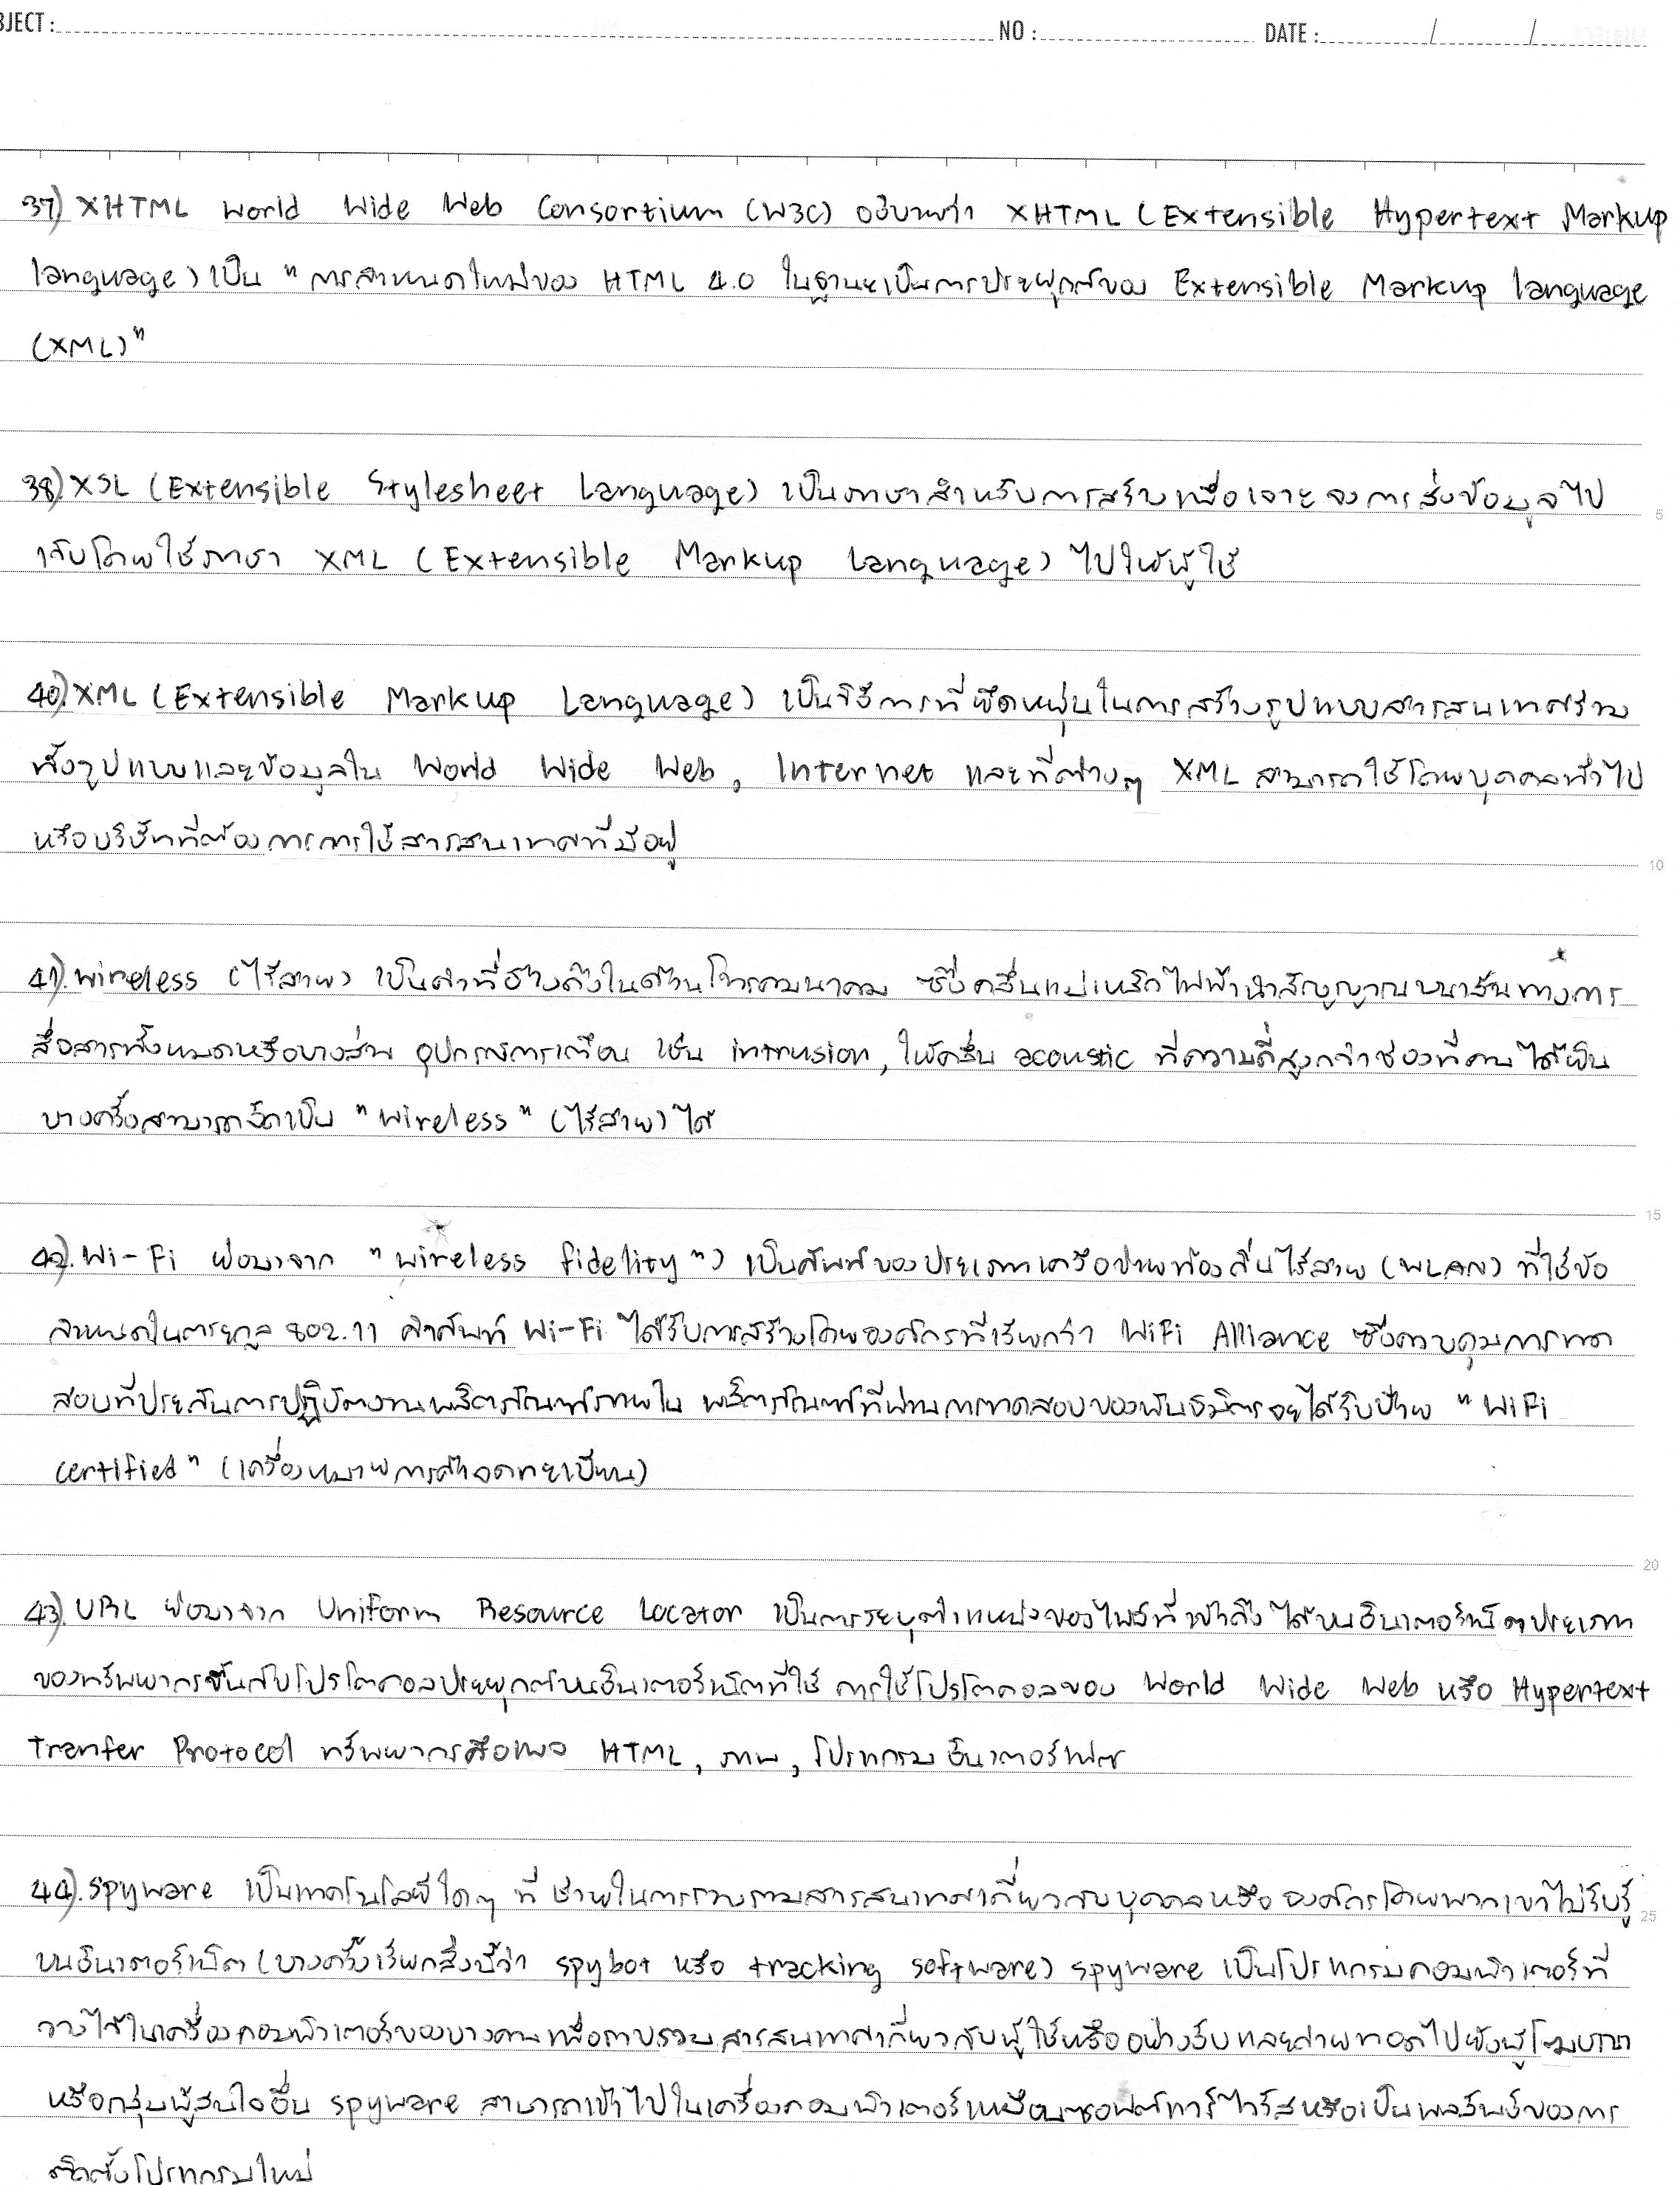 BJECT : NO : DATE : / /
37) XHTML World Wide Web Consortium (W3C) อธิบายว่า XHTML (Extensible Hypertext Markup
language) เป็น "การกำหนดใหม่ของ HTML 4.0 ในฐานะเป็นการประยุกต์ของ Extensible Markup language
(XML)"
38) XSL (Extensible Stylesheet Language) เป็นภาษาสำหรับการสร้างเพื่อเจาะจงการส่งข้อมูลไป
เว็บโดยใช้ภาษา XML (Extensible Markup Language) ไปให้ผู้ใช้
5
40). XML (Extensible Markup Language) เป็นวิธีการที่ยืดหยุ่นในการสร้างรูปแบบสารสนเทศร่วม
ทั้งรูปแบบและข้อมูลใน World Wide Web, Internet และที่ต่างๆ XML สามารถใช้โดยบุคคลทั่วไป
หรือบริษัทที่ต้องการการใช้สารสนเทศที่มีอยู่
10
41). wireless (ไร้สาย) เป็นคำที่อ้างถึงในด้านโทรคมนาคม ซึ่งคลื่นแม่เหล็กไฟฟ้านำสัญญาณบนเส้นทางการ
สื่อสารทั้งหมดหรือบางส่วน อุปกรณ์การเตือน เช่น intrusion, ให้คลื่น acoustic ที่ความถี่สูงกว่าช่องที่คนได้ยิน
บางครั้งสามารถจัดเป็น "wireless" (ไร้สาย) ได้
15
42). Wi-Fi ย่อมาจาก "wireless fidelity") เป็นศัพท์ของประเภทเครือข่ายท้องถิ่นไร้สาย (WLAN) ที่ใช้ข้อ
กำหนดในตระกูล 802.11 คำศัพท์ Wi-Fi ได้รับการสร้างโดยองค์กรที่เรียกว่า WiFi Alliance ซึ่งควบคุมการทด
สอบที่ประกันการปฏิบัติงานผลิตภัณฑ์ภายใน ผลิตภัณฑ์ที่ผ่านการทดสอบของพันธมิตรจะได้รับป้าย "WiFi
certified" (เครื่องหมายการค้าจดทะเบียน)
20
43). URL ย่อมาจาก Uniform Resource Locator เป็นการระบุตำแหน่งของไฟล์ที่เข้าถึงได้บนอินเตอร์เน็ตประเภท
ของทรัพยากรขึ้นกับโปรโตคอลประยุกต์บนอินเตอร์เน็ตที่ใช้ การใช้โปรโตคอลของ World Wide Web หรือ Hypertext
Tranfer Protocol ทรัพยากรคือเพจ HTML, ภาพ, โปรแกรมอินเตอร์เฟซ
44). spyware เป็นเทคโนโลยีใดๆ ที่ช่วยในการรวบรวมสารสนเทศเกี่ยวกับบุคคลหรือองค์กรโดยพวกเขาไม่รับรู้
25
บนอินเตอร์เน็ต (บางครั้งเรียกสิ่งนี้ว่า spybot หรือ tracking software) spyware เป็นโปรแกรมคอมพิวเตอร์ที่
วางไว้ในเครื่องคอมพิวเตอร์ของบางคนเพื่อรวบรวมสารสนเทศเกี่ยวกับผู้ใช้หรืออย่างลับและถ่ายทอดไปยังผู้โฆษณา
หรือกลุ่มผู้สนใจอื่น spyware สามารถเข้าไปในเครื่องคอมพิวเตอร์เหมือนซอฟต์แวร์ไวรัสหรือเป็นผลลัพธ์ของการ
ติดตั้งโปรแกรมใหม่